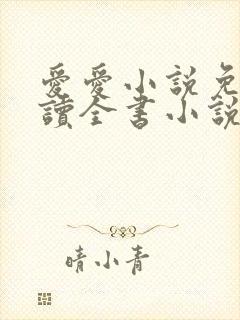 愛愛小説免
讀全書小說
晴小青